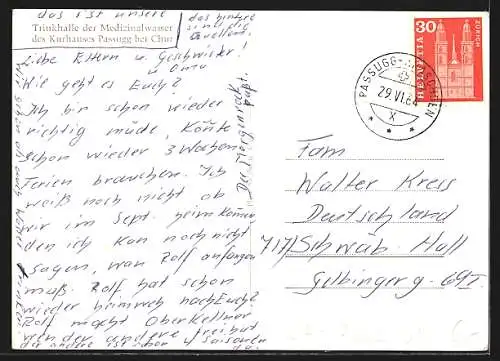 das ist unsere
das hintere
sind die
Quellen!
Trinkhalle der Medizinalwasser
des Kurhauses Passugg bei Chur
Liebe Eltern u. Geschwister!
u Oma
Wie geht es Euch?
Ich bin schon wieder
richtig müde, könnte
schon wieder 3 Wochen
Ferien brauchen. Ich
weiß noch nicht ob
wir im Sept. heim können
den ich kan noch nicht
sagen, wan Rolf anfangen
muß. Rolf hat schon
wieder heimweh nach Euch?
Rolf macht Oberkellner
der andere frei hat
4 Saisonen
HELVETIA
30
ZÜRICH
PASSUGG-ARASCHGEN
29.VI.64
X
Fam
Walter Kress
Deutschland
717 Schwäb. Hall
Gelbingerg. 69